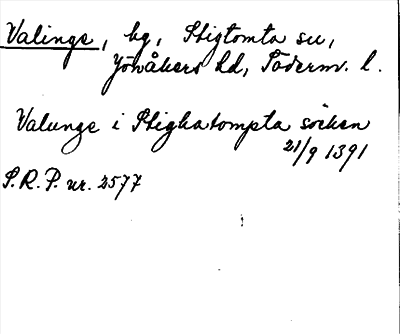 Valinge, by, Stigtomta sn,
Jönåkers hd, Söderm. l.
Valunge i Stighatompta sôcken
21/9 1391
S.R.P. nr. 2577